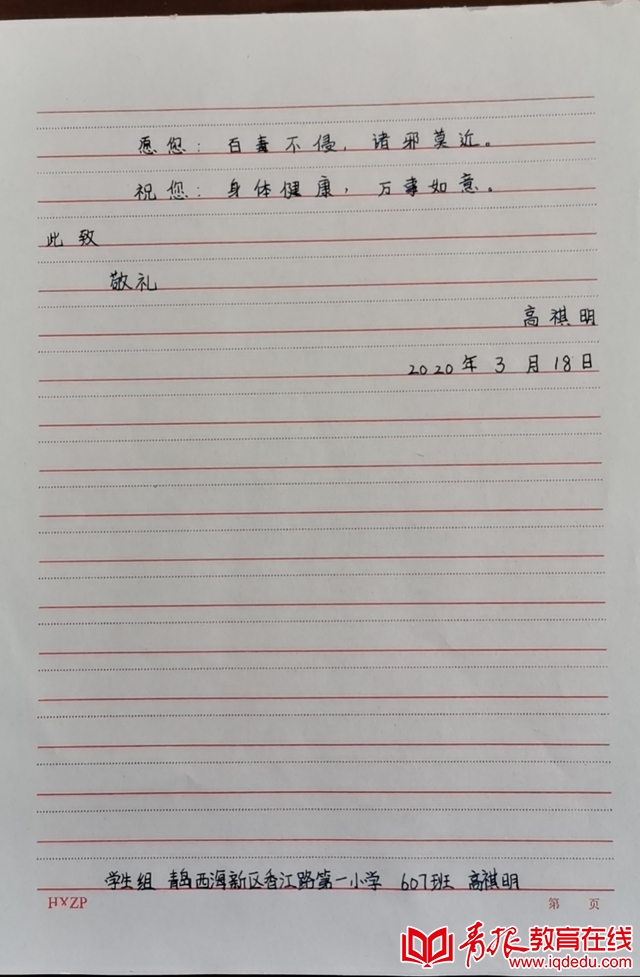 愿您：百毒不侵，诸邪莫近。
祝您：身体健康，万事如意。
此致
敬礼
高祺明
2020年3月18日
学生组 青岛西海新区香江路第一小学 607班 高祺明
HXZP 第 页
青报教育在线
www.iqdedu.com